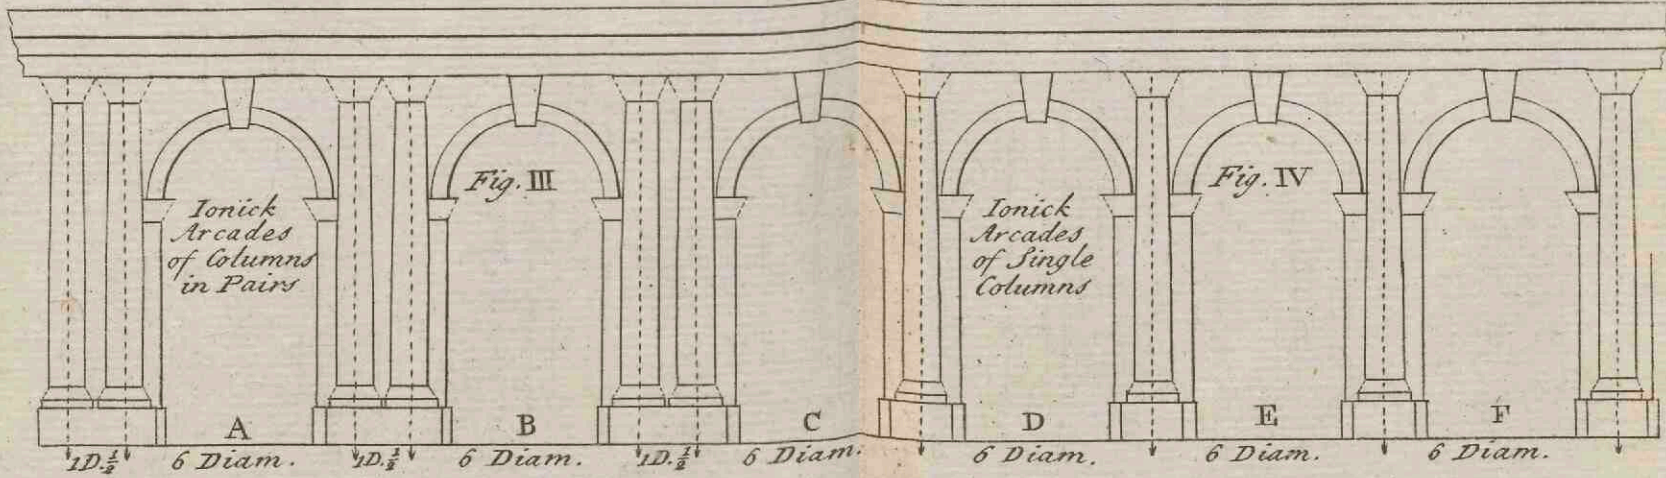 Fig. III
Ionick
Arcades
of Columns
in Pairs
Fig. IV
Ionick
Arcades
of Single
Columns
A B C D E F
1D.½ 6 Diam. 1D.½ 6 Diam. 1D.½ 6 Diam. 6 Diam. 6 Diam. 6 Diam.